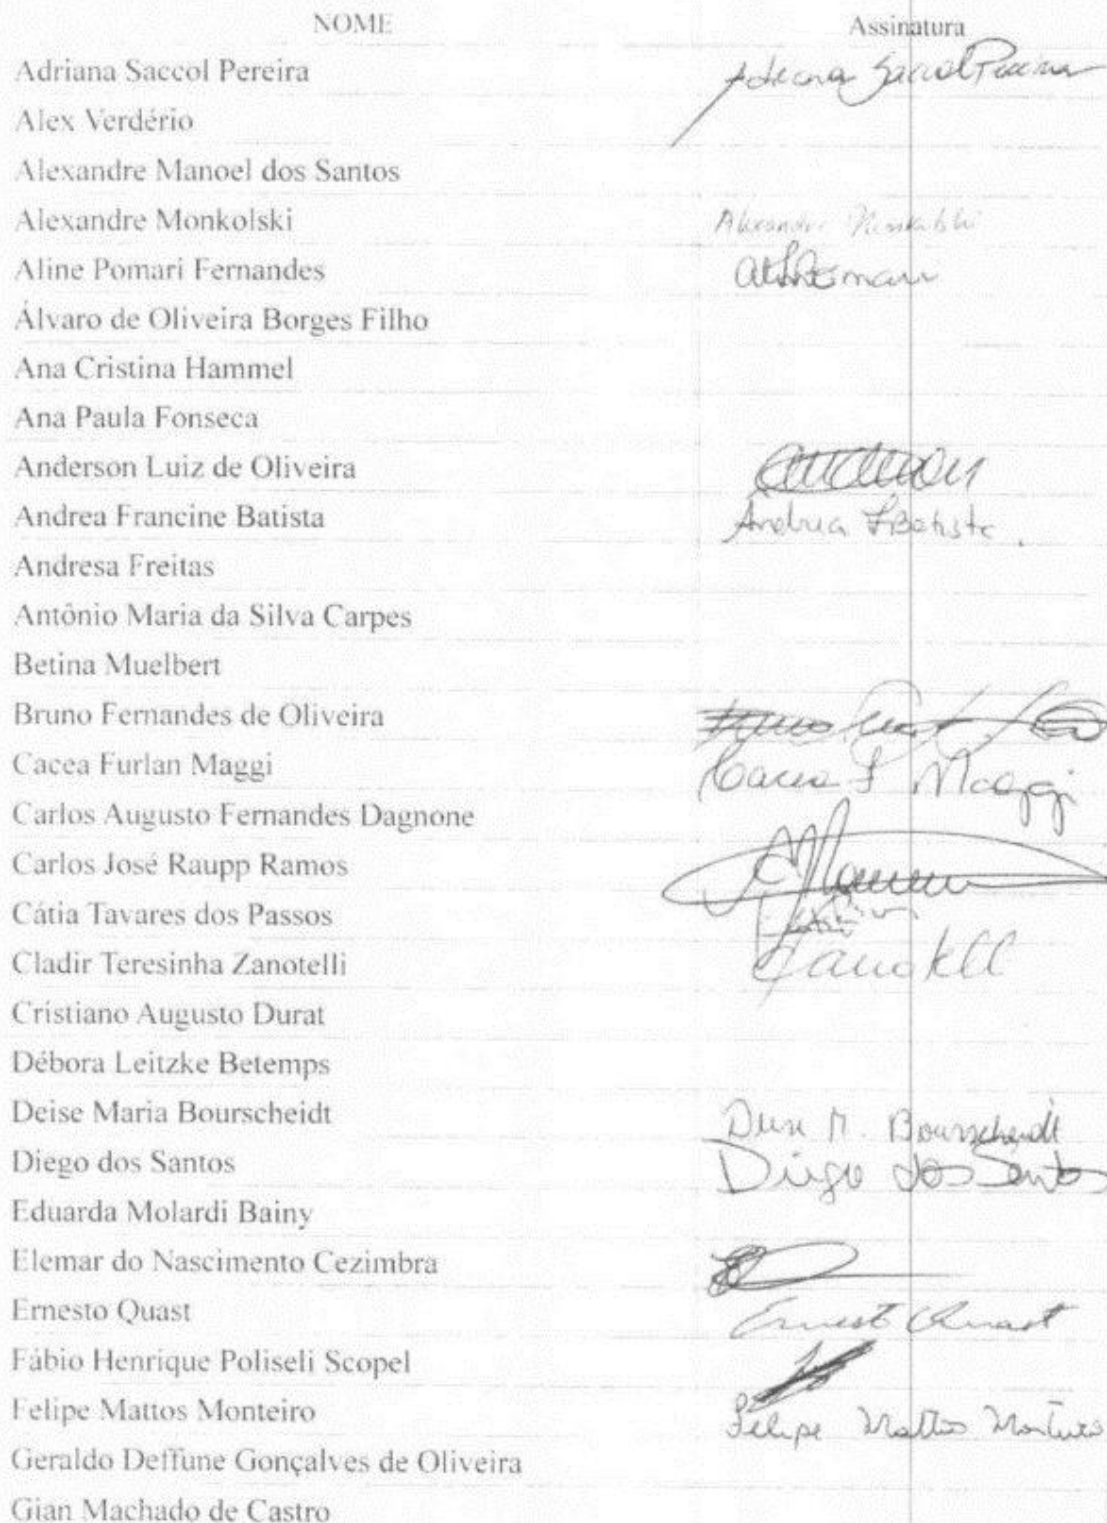 NOME Assinatura
Adriana Saccol Pereira Adriana Saccol Pereira
Alex Verdério
Alexandre Manoel dos Santos
Alexandre Monkolski Alexandre Monkolski
Aline Pomari Fernandes
Álvaro de Oliveira Borges Filho
Ana Cristina Hammel
Ana Paula Fonseca
Anderson Luiz de Oliveira Anderson
Andrea Francine Batista Andrea F Batista.
Andresa Freitas
Antônio Maria da Silva Carpes
Betina Muelbert
Bruno Fernandes de Oliveira
Cacea Furlan Maggi Cacea F Maggi
Carlos Augusto Fernandes Dagnone
Carlos José Raupp Ramos
Cátia Tavares dos Passos
Cladir Teresinha Zanotelli Zanotelli
Cristiano Augusto Durat
Débora Leitzke Betemps
Deise Maria Bourscheidt Deise M. Bourscheidt
Diego dos Santos Diego dos Santos
Eduarda Molardi Bainy
Elemar do Nascimento Cezimbra
Ernesto Quast Ernesto Quast
Fábio Henrique Poliseli Scopel
Felipe Mattos Monteiro Felipe Mattos Monteiro
Geraldo Deffune Gonçalves de Oliveira
Gian Machado de Castro